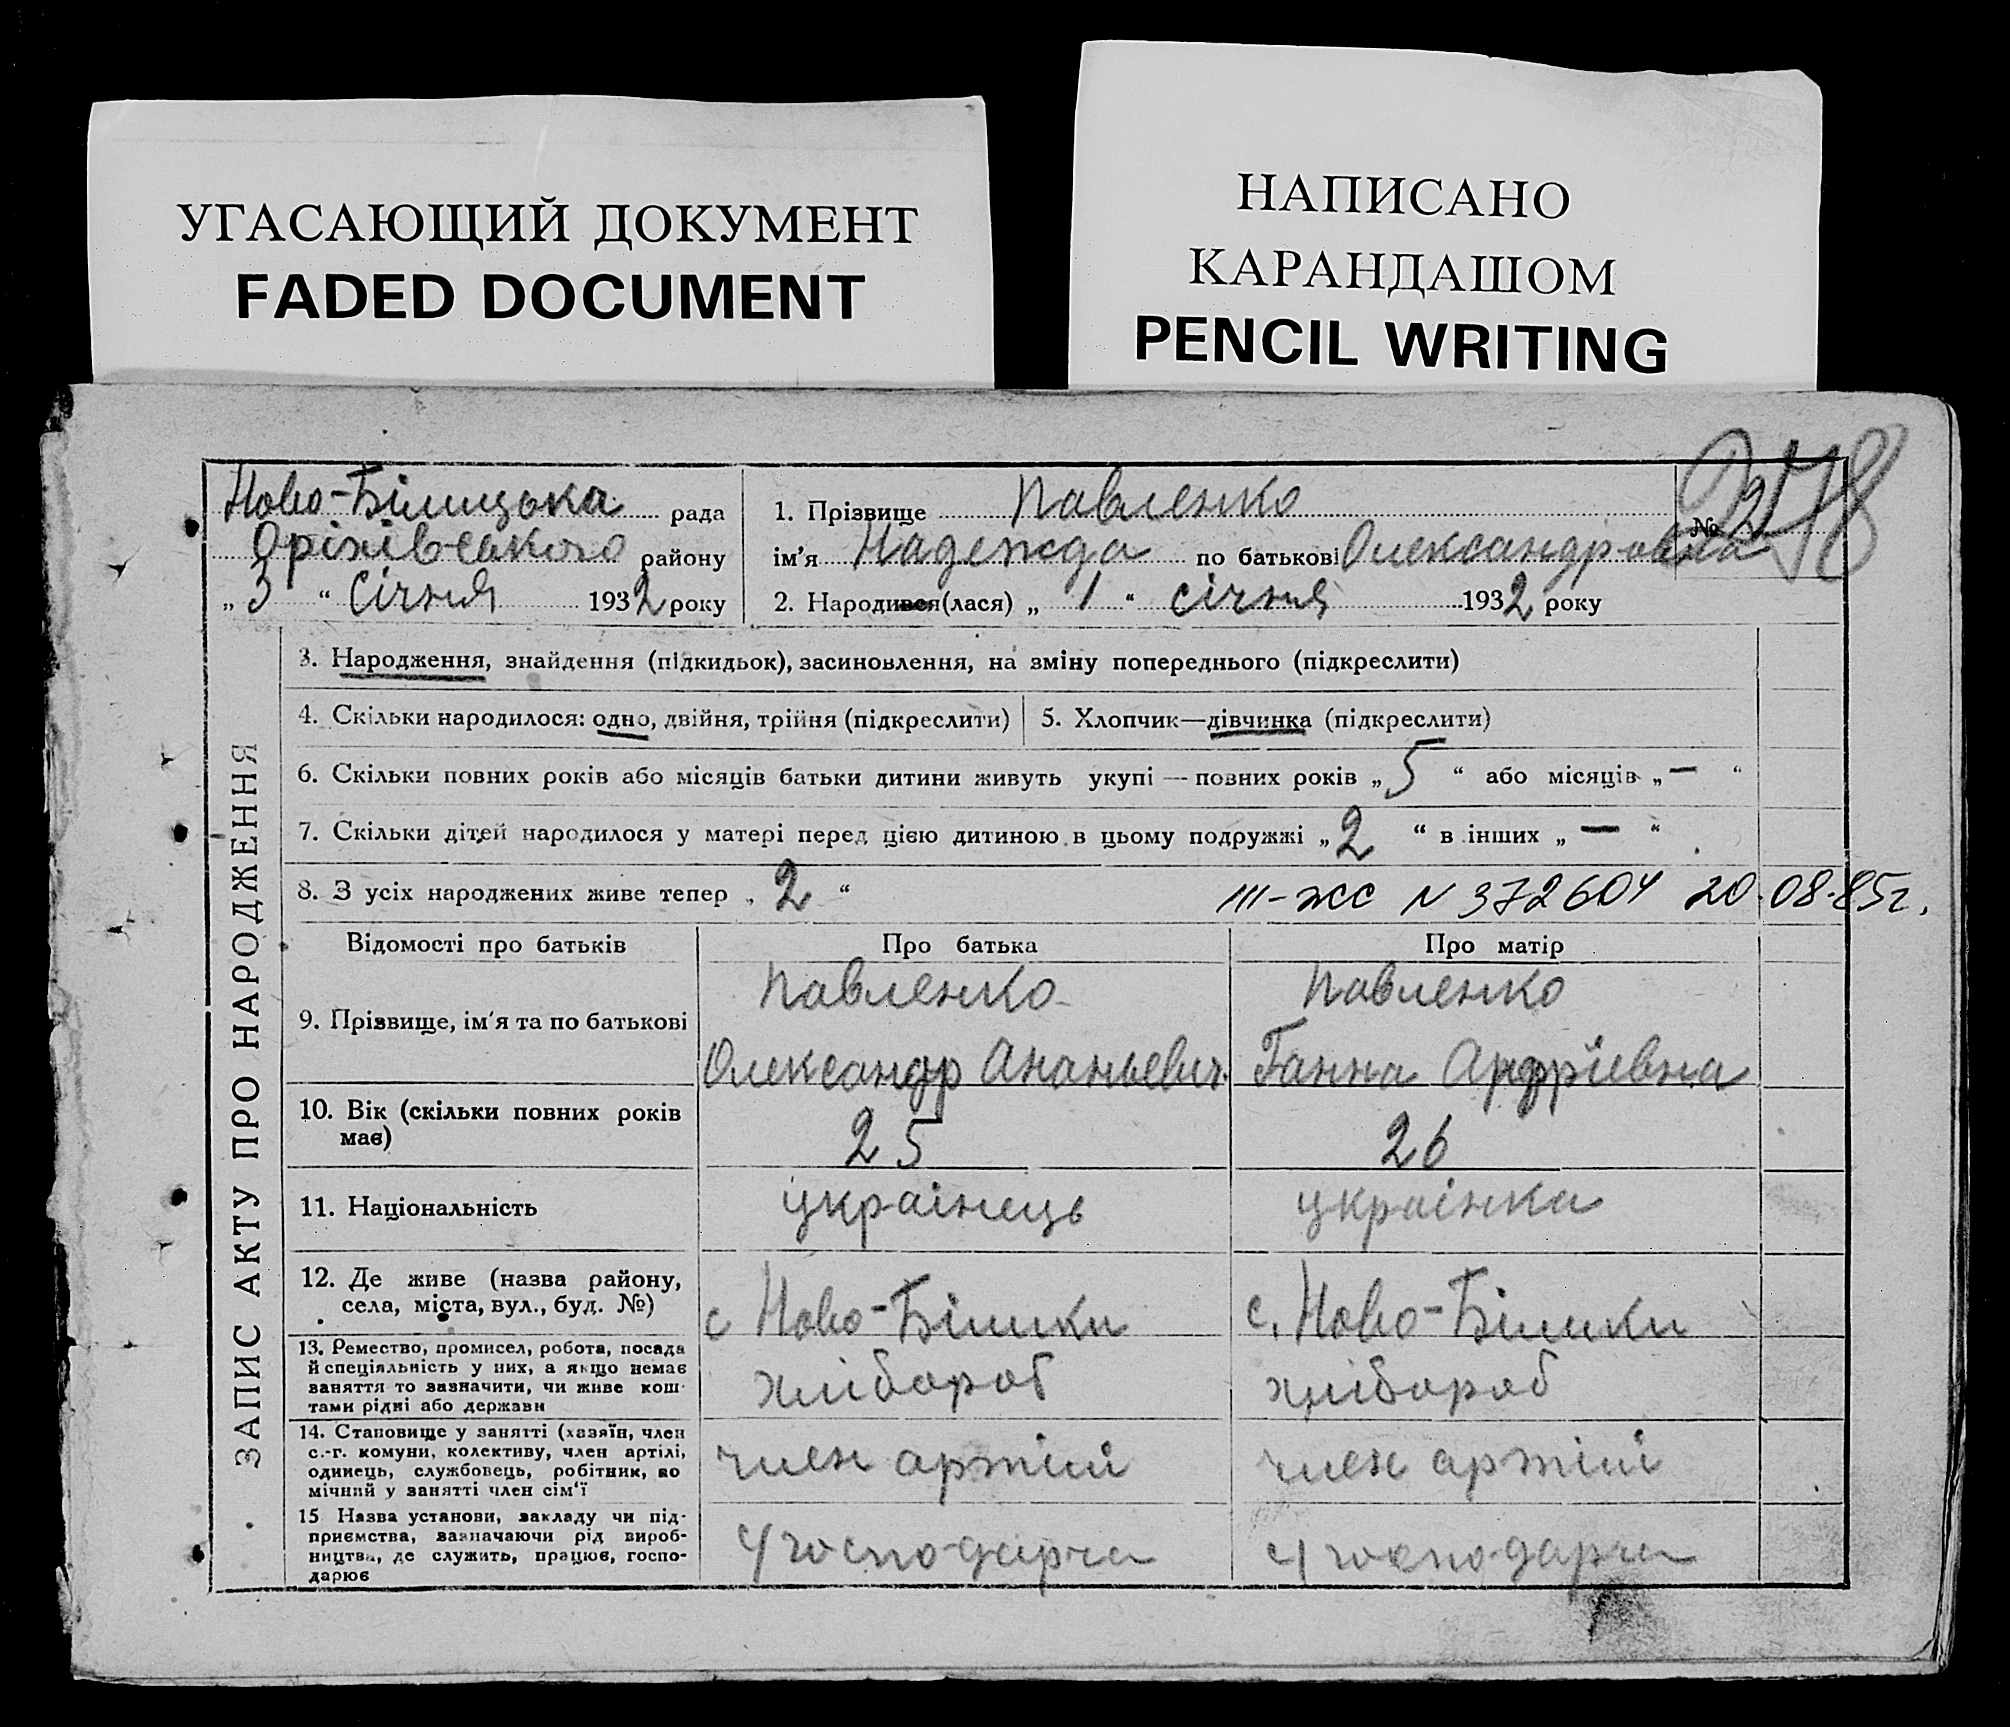 УГАСАЮЩИЙ ДОКУМЕНТ
FADED DOCUMENT
НАПИСАНО
КАРАНДАШОМ
PENCIL WRITING
Ново-Білицька рада
Оріхівського району
„ 3 “ Січня 1932 року
1. Прізвище Павленко
ім'я Надежда по батькові Олександровна
2. Народився (лася) „ 1 “ січня 1932 року
№ 2
ЗАПИС АКТУ ПРО НАРОДЖЕННЯ
3. Народження, знайдення (підкидьок), засиновлення, на зміну попереднього (підкреслити)
4. Скільки народилося: одно, двійня, трійня (підкреслити)
5. Хлопчик—дівчинка (підкреслити)
6. Скільки повних років або місяців батьки дитини живуть укупі — повних років „ 5 “ або місяців „ — “
7. Скільки дітей народилося у матері перед цією дитиною в цьому подружжі „ 2 “ в інших „ — “
8. З усіх народжених живе тепер „ 2 “
III-ЖС N 372604 20.08.85г.
Відомості про батьків
Про батька
Про матір
9. Прізвище, ім'я та по батькові
Павленко
Олександр Ананьевич
Павленко
Ганна Андріевна
10. Вік (скільки повних років
має)
25
26
11. Національність
українець
українка
12. Де живе (назва району,
села, міста, вул., буд. №)
с Ново-Білики
с. Ново-Білики
13. Ремество, промисел, робота, посада
й спеціяльність у них, а якщо немає
заняття то зазначити, чи живе кош-
тами рідні або держави
хлібороб
хлібороб
14. Становище у занятті (хазяїн, член
с.-г. комуни, колективу, член артілі,
одинець, службовець, робітник, по
мічний у занятті член сім'ї
член артілі
член артілі
15 Назва установи, закладу чи під-
приємства, зазначаючи рід вироб-
ництва, де служить, працює, госпо-
дарює